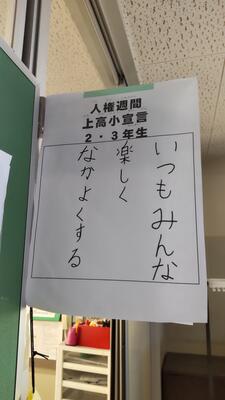 人権週間
上高小宣言
2・3年生
いつもみんな
楽しく
なかよくする